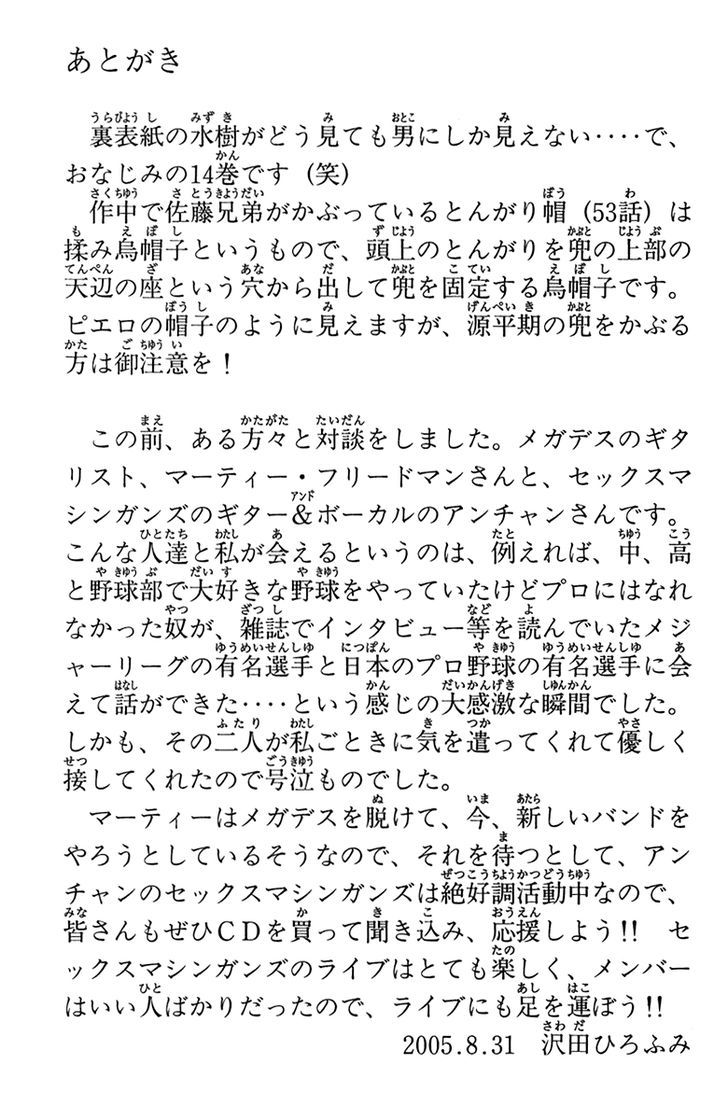 あとがき
裏表紙の水樹がどう見ても男にしか見えない‥‥で、
おなじみの14巻です（笑）
作中で佐藤兄弟がかぶっているとんがり帽（53話）は
揉み烏帽子というもので、頭上のとんがりを兜の上部の
天辺の座という穴から出して兜を固定する烏帽子です。
ピエロの帽子のように見えますが、源平期の兜をかぶる
方は御注意を！
この前、ある方々と対談をしました。メガデスのギタ
リスト、マーティー・フリードマンさんと、セックスマ
シンガンズのギター＆ボーカルのアンチャンさんです。
こんな人達と私が会えるというのは、例えれば、中、高
と野球部で大好きな野球をやっていたけどプロにはなれ
なかった奴が、雑誌でインタビュー等を読んでいたメジ
ャーリーグの有名選手と日本のプロ野球の有名選手に会
えて話ができた‥‥という感じの大感激な瞬間でした。
しかも、その二人が私ごときに気を遣ってくれて優しく
接してくれたので号泣ものでした。
マーティーはメガデスを脱けて、今、新しいバンドを
やろうとしているそうなので、それを待つとして、アン
チャンのセックスマシンガンズは絶好調活動中なので、
皆さんもぜひＣＤを買って聞き込み、応援しよう!!　セ
ックスマシンガンズのライブはとても楽しく、メンバー
はいい人ばかりだったので、ライブにも足を運ぼう!!
2005.8.31　沢田ひろふみ